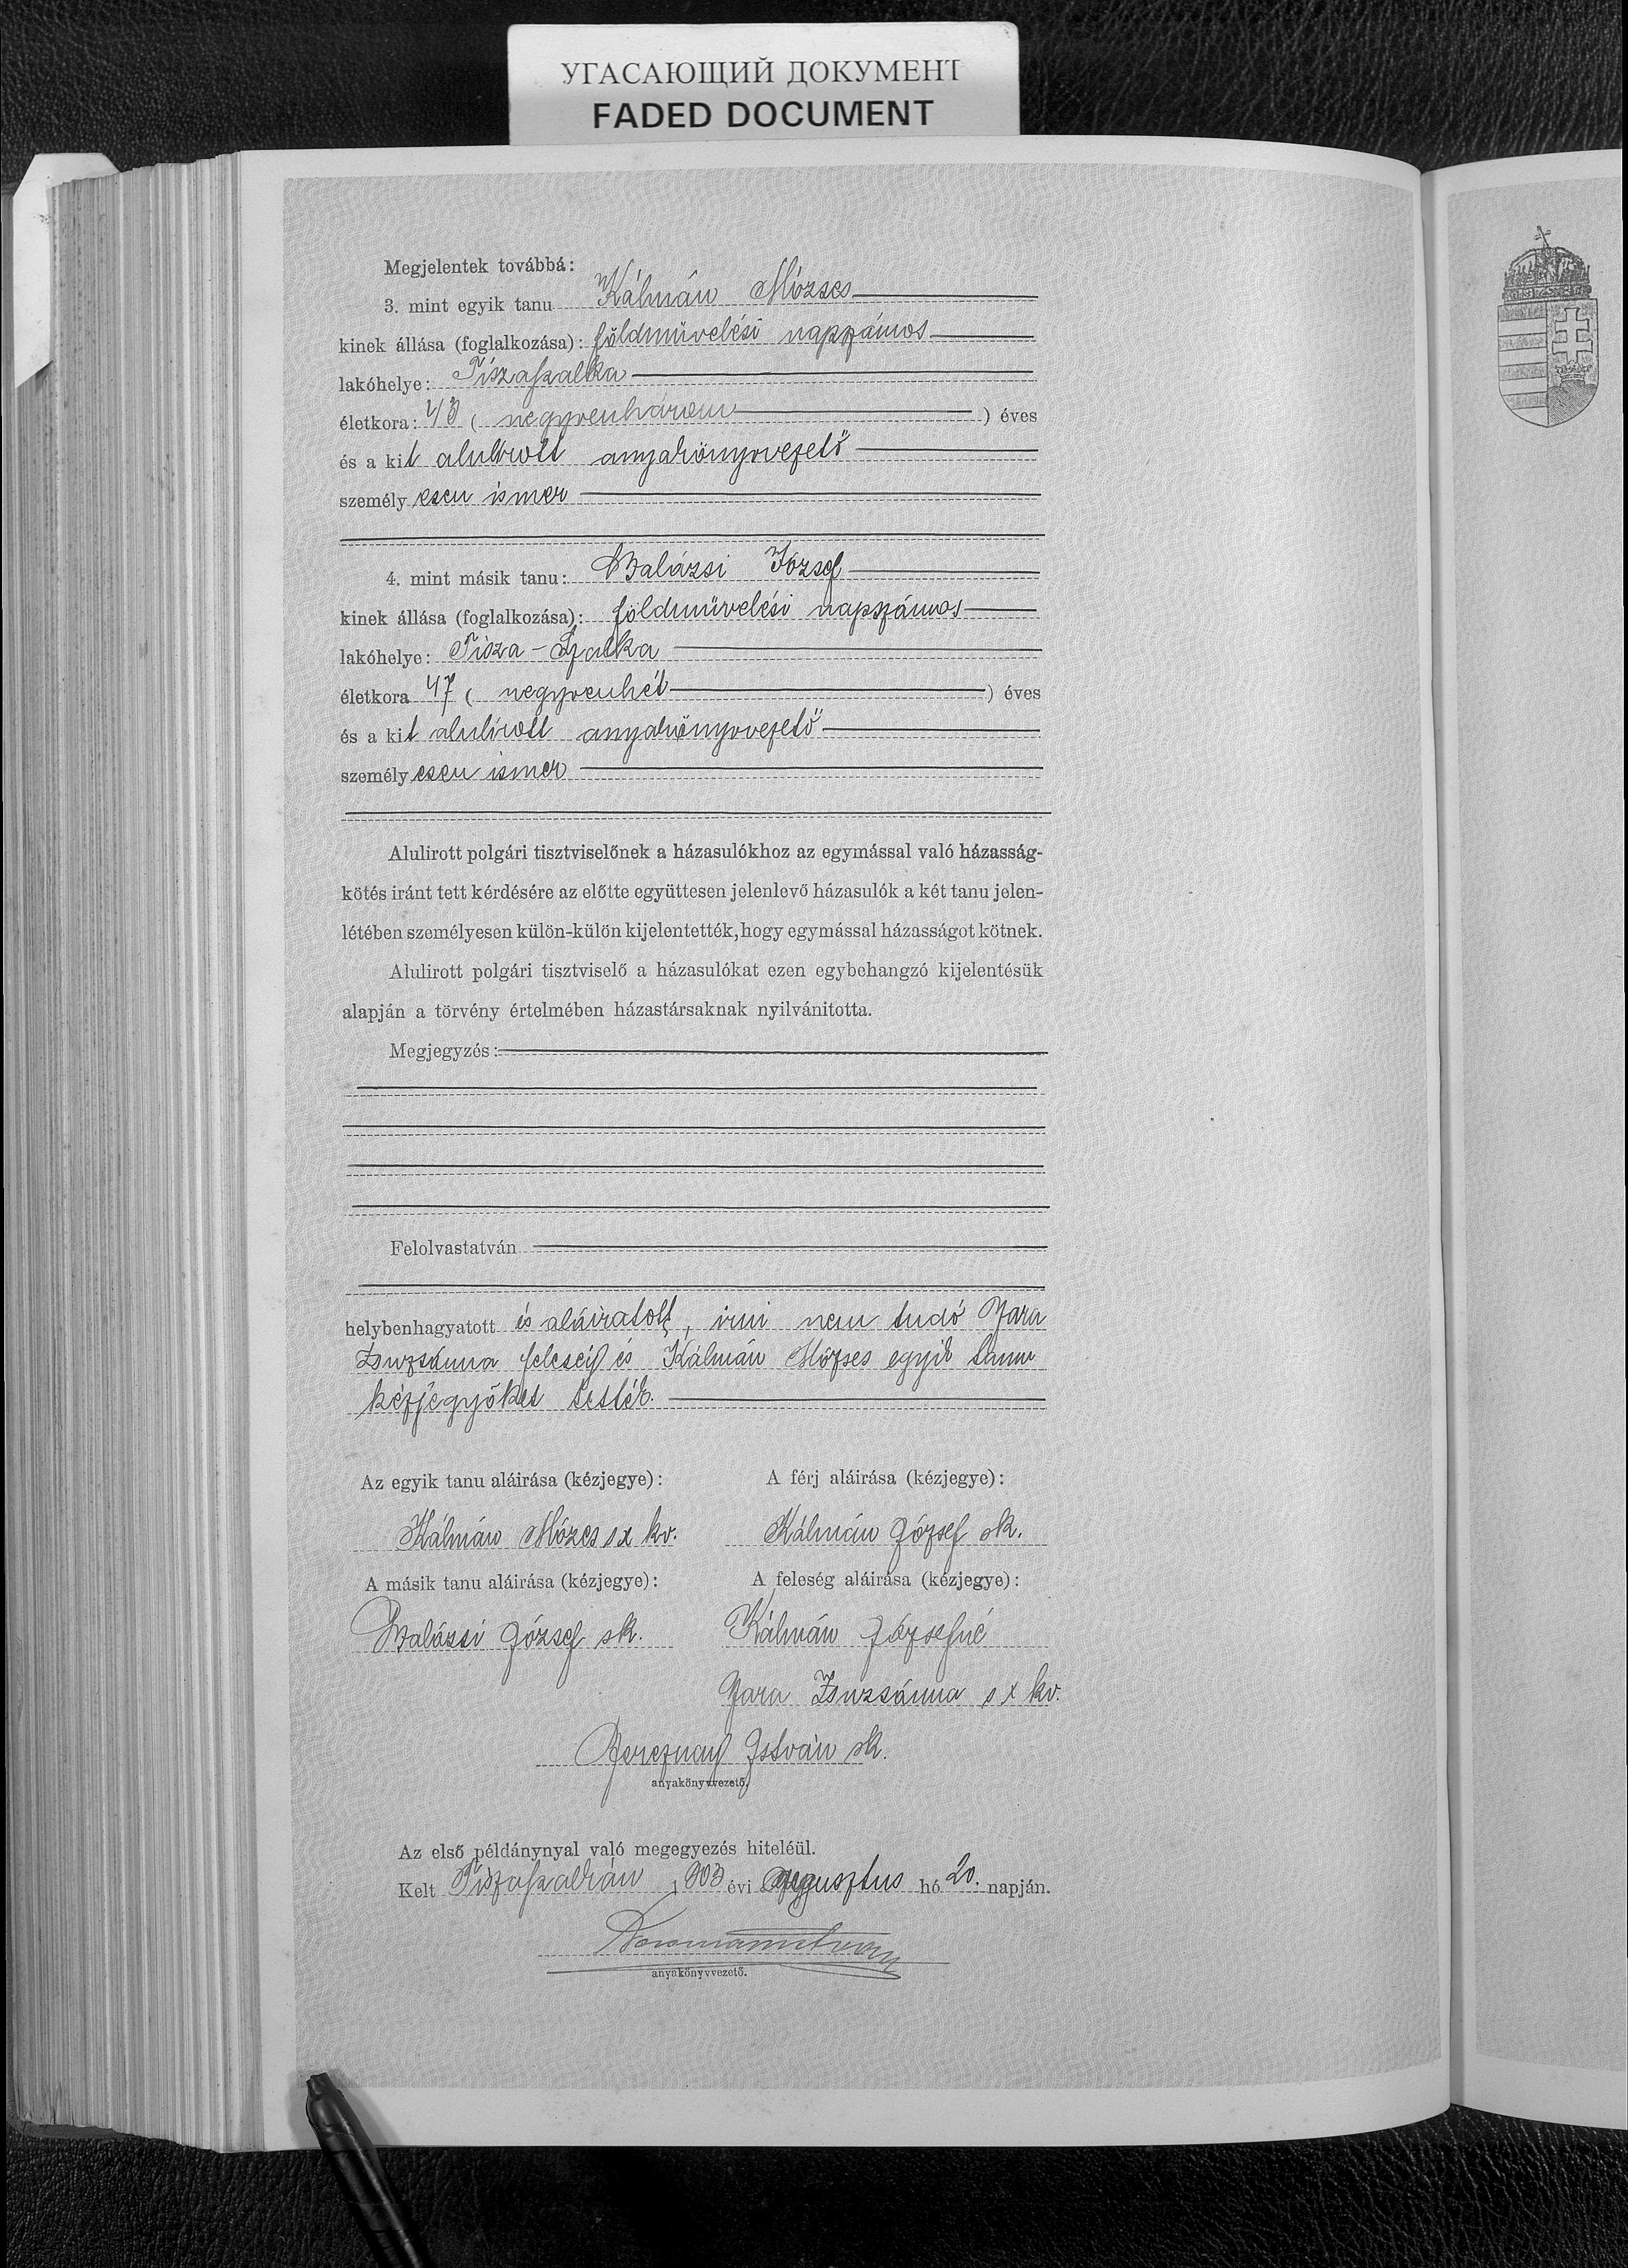 УГАСАЮЩИЙ ДОКУМЕНТ
FADED DOCUMENT
Megjelentek továbbá:
3. mint egyik tanu Kálmán Mózses
kinek állása (foglalkozása): földmüvelési napszámos
lakóhelye: Tiszaszalka
életkora: 43 ( negyvenhárom ) éves
és a kit alulirott anyakönyvvezető
személyesen ismer
4. mint másik tanu: Balázsi József
kinek állása (foglalkozása): földmüvelési napszámos
lakóhelye: Tisza-Szalka
életkora 47 ( negyvenhét ) éves
és a kit alulirott anyakönyvvezető
személyesen ismer
Alulirott polgári tisztviselőnek a házasulókhoz az egymással való házasság-
kötés iránt tett kérdésére az előtte együttesen jelenlevő házasulók a két tanu jelen-
létében személyesen külön-külön kijelentették, hogy egymással házasságot kötnek.
Alulirott polgári tisztviselő a házasulókat ezen egybehangzó kijelentésük
alapján a törvény értelmében házastársaknak nyilvánitotta.
Megjegyzés:
Felolvastatván
helybenhagyatott és aláiratott, irni nem tudó Jara
Zsuzsánna feleség és Kálmán Mózses egyik tanu
kézjegyőket tették.
Az egyik tanu aláirása (kézjegye):
A férj aláirása (kézjegye):
Kálmán Mózes s x kv.
Kálmán József sk.
A másik tanu aláirása (kézjegye):
A feleség aláirása (kézjegye):
Balázsi József sk.
Kálmán Józsefné
Jara Zsuzsánna s x kv.
Bereznay István sk.
anyakönyvvezető.
Az első példánynyal való megegyezés hiteléül.
Kelt Tiszaszalkán 1903 évi augusztus hó 20. napján.
anyakönyvvezető.